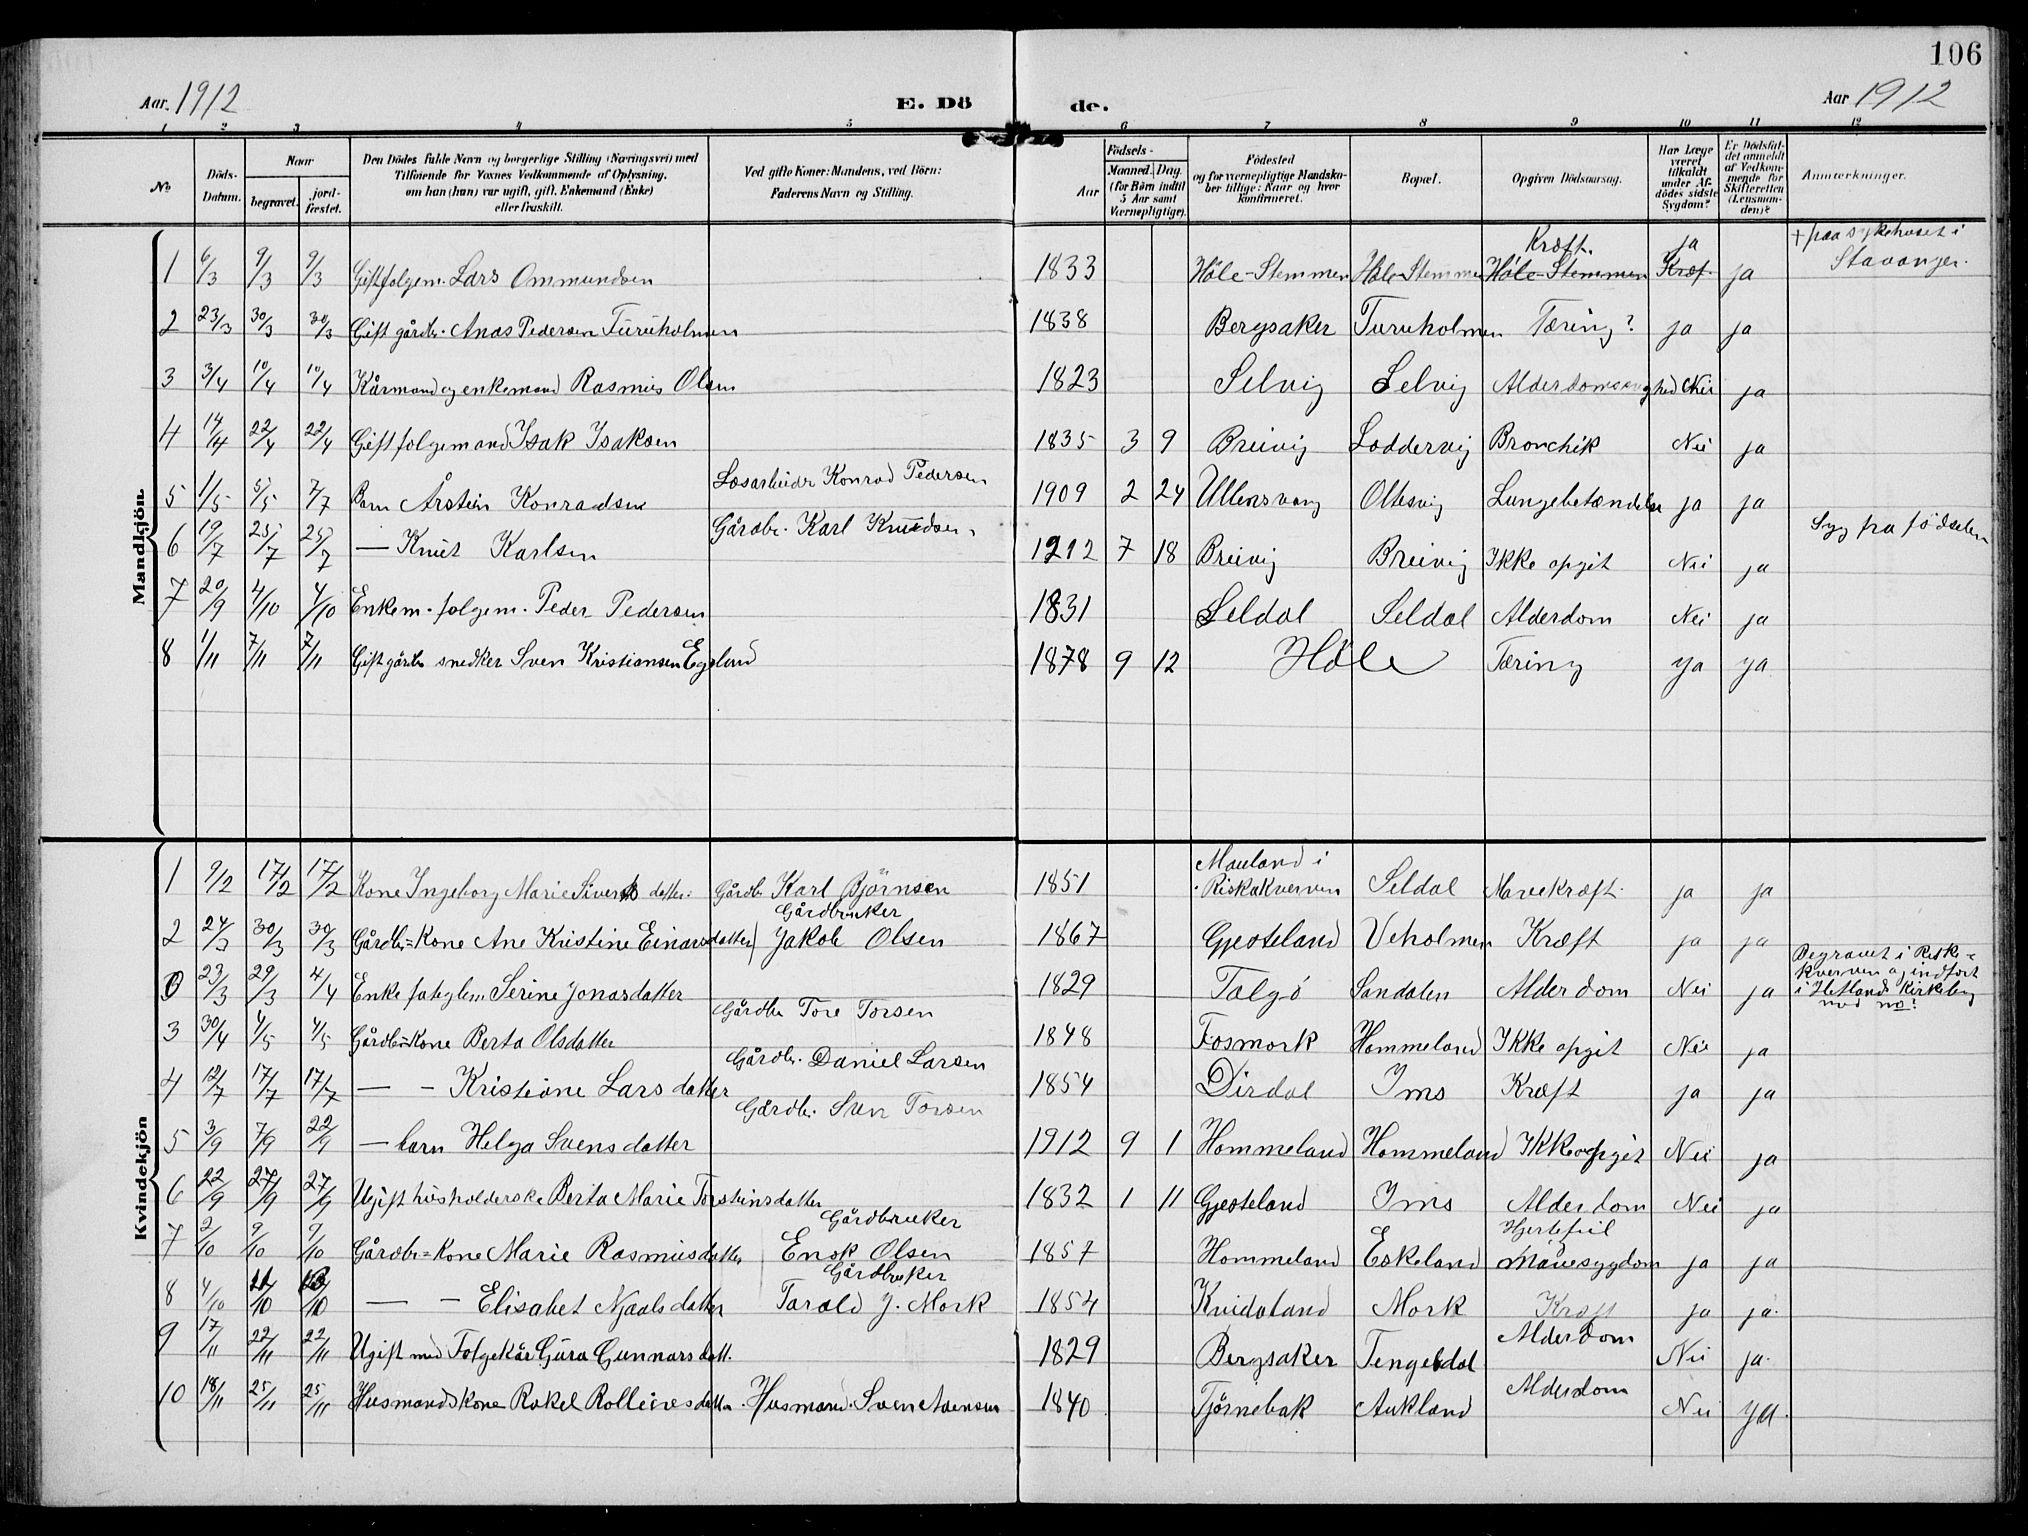 106
Aar. 1912
E. Dö de.
Aar 1912
1 2 3 4 5 6 7 8 9 10 11 12
No
Döds-Datum.
Naar
begravet.
jord-fæstet.
Den Dödes fulde Navn og borgerlige Stilling (Næringsvei) med
Tilföiende for Voxnes Vedkommende af Oplysning,
om han (hun) var ugift, gift, Enkemand (Enke)
eller fraskilt.
Ved gifte Koner: Mandens, ved Börn:
Faderens Navn og Stilling.
Födsels-
Aar
Maaned. Dag.
(for Börn indtil
5 Aar samt
Værnepligtige).
Födested
og for værnepligtige Mandska-
ber tillige: Naar og hvor
konfirmeret.
Bopæl.
Opgiven Dödsaarsag.
Har Læge
været
tilkaldt
under Af-
dödes sidste
Sygdom?
Er Dödsfal-
det anmeldt
af Vedkom-
mende for
Skifteretten
(Lensman-
den)?
Anmærkninger.
Mandkjön.
1 6/3 9/3 9/3 Gift folgem. Lars Ommundsen 1833 Höle-Stemmen Höle-Stemmen Höle-Stemmen Kræft. Kræf. ja ja + paa sykehuset i Stavanger.
2 23/3 30/3 30/3 Gift gårdbr. Anas Pedersen Furuholmen 1838 Bergsaker Furuholmen Tæring? ja ja
3 3/4 10/4 10/4 Kårmand og enkemand Rasmus Olsen 1823 Selvig Selvig Alderdomssvaghed Nei ja
4 14/4 22/4 22/4 Gift folgemand Isak Isaksen 1835 3 9 Breivig Loddervig Bronchit Nei ja
5 1/5 5/5 7/7 Barn Årstein Konradsen Løsarbeider Konrad Pedersen 1909 2 24 Ullensvang Oltesvig Lungebetændelse ja ja
6 19/7 25/7 25/7 — Knut Karlsen Gårdbr. Karl Knudsen 1912 7 18 Breivig Breivig Ikke opgit Nei ja Syg fra födselen
7 20/9 4/10 4/10 Enkem. folgem. Peder Pedersen 1831 Seldal Seldal Alderdom Nei ja
8 1/11 7/11 7/11 Gift gårdbr. snedker Sven Kristiansen Egeland 1878 9 12 Höle Tæring ja ja
Kvindekjön
1 9/2 17/2 17/2 Kone Ingeborg Marie Siverts datter. Gårdbr Karl Björnsen 1851 Mauland i Riskakverven Seldal Mavekræft. ja ja
2 24/3 30/3 30/3 Gårdbr=Kone Ane Kristine Einarsdatter Gårdbruker Jakob Olsen 1867 Gjesteland Veholmen Kræft ja ja
0 23/3 29/3 4/4 Enke Serine Jonasdatter 1829 Talgö Sandalen Alderdom Nei ja Begravet i Riske-kverven og indfört i Hetlands Kirkebog med no!
3 30/4 4/5 4/5 Gårdbr=Kone Berta Olsdatter Gårdbr Tore Torsen 1848 Fosmork Hommeland Ikke opgit Nei ja
4 12/7 17/7 17/7 — - Kristine Lars datter Gårdbr. Daniel Larsen 1854 Dirdal Ims Kræft ja ja
5 3/9 7/9 22/9 — barn Helga Svens datter Gårdbr. Sven Torsen 1912 9 1 Hommeland Hommeland Ikke opgit Nei ja
6 22/9 27/9 27/9 Ugift husholderske Berta Marie Torsteinsdatter 1832 1 11 Gjesteland Ims Alderdom Nei ja
7 2/10 9/10 9/10 Gårdbr=Kone Marie Rasmusdatter Gårdbruker Enok Olsen 1857 Hommeland Eskeland Hjertefeil Mavesygdom ja ja
8 4/10 — - Elisabet Njaals datter Gårdbruker Tarald J. Mork 1854 Kvidaland Mork Kræft ja ja.
9 17/11 22/11 22/11 Ugift med Folgekår Gura Gunnarsdatt. 1829 Bergsaker Tengesdal Alderdom Nei ja.
10 18/11 25/11 25/11 Husmandskone Rakel Rolleivsdatter Husmand. Sven 1840 Tjörnebak Aukland Alderdom Nei ja.